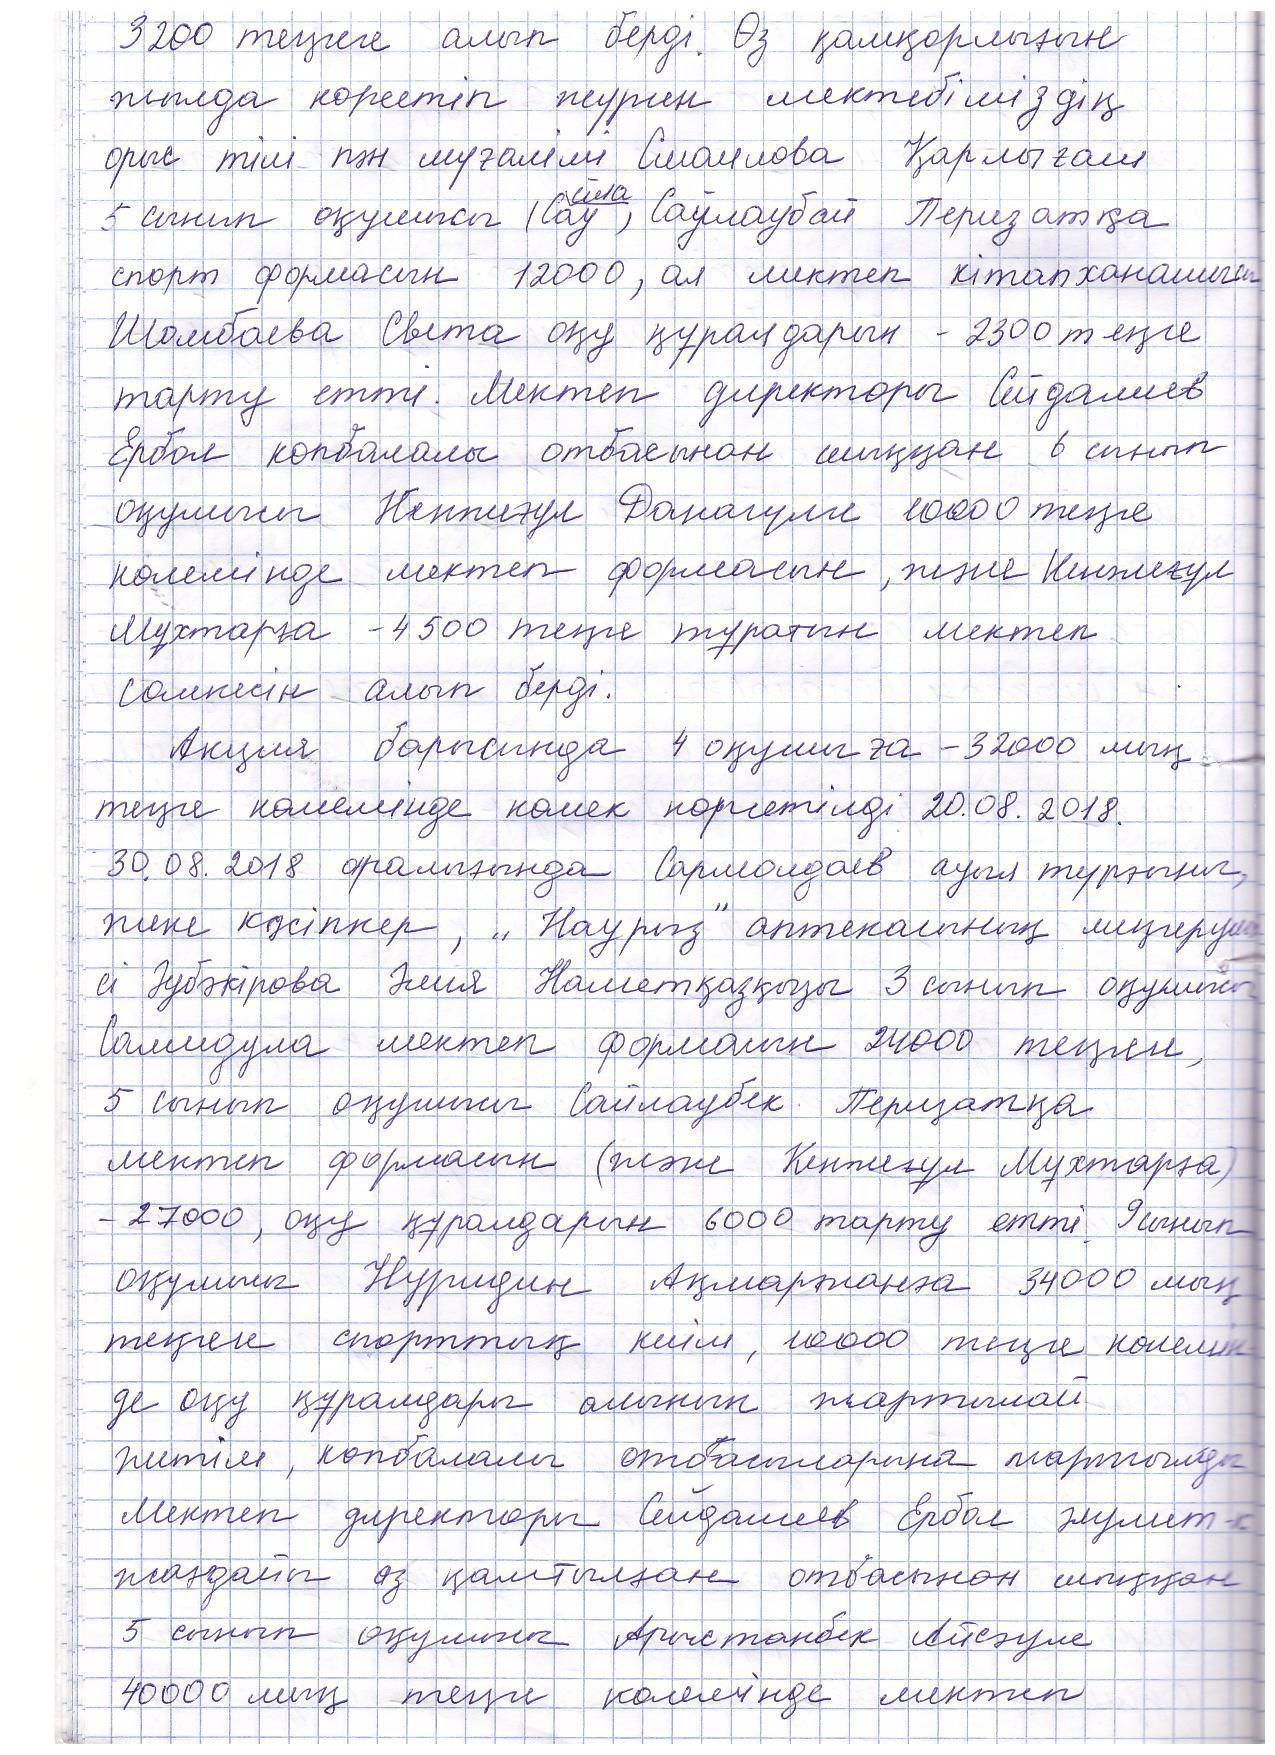 3200 теңгеге алып берді. Өз қамқорлығын
жылда көрсетіп жүрген мектебіміздің
орыс тілі пән мұғалімі Смаилова Қарлығаш
5 сынып оқушысы Саўлаубай Перизатқа
спорт формасын 12000, ал мектеп кітапханашысы
Шомбаева Света оқу құралдарын - 2300 теңге
тарту етті. Мектеп директоры Сейдалиев
Ербол көпбалалы отбасынан шыққан 6 сынып
оқушысы Кенжеғұл Данагүлге 10000 теңге
көлемінде мектеп формасын, және Кенжеғұл
Мұхтарға - 4500 теңге тұратын мектеп
сөмкесін алып берді.
Акция барысында 4 оқушыға - 32000 мың
теңге көлемінде көмек көрсетілді 20.08.2018.
30.08.2018 аралығында Сармолдаев ауыл тұрғыны,
жеке кәсіпкер, „Наурыз" аптекасының меңгеруші
сі Әубәкірова Әлия 3 сынып оқушысы
мектеп формасын 24000 теңгеге,
5 сынып оқушысы Сайлаубек Перизатқа
мектеп формасын (және Кенжеғұл Мұхтарға)
- 27000, оқу құралдарын 6000 тарту етті. 9 сынып
оқушысы Нуридин Ақмаржанға 34000 мың
теңгеге спорттық киім, 10000 теңге көлемін-
де оқу құралдары алынып жартылай
жетім, көпбалалы отбасыларына таратылды
Мектеп директоры Сейдалиев Ербол әлумет-к
жағдайы аз қамтылған отбасынан шыққан
5 сынып оқушысы Арыстанбек Айсәуле
40000 мың теңге көлемінде мектеп